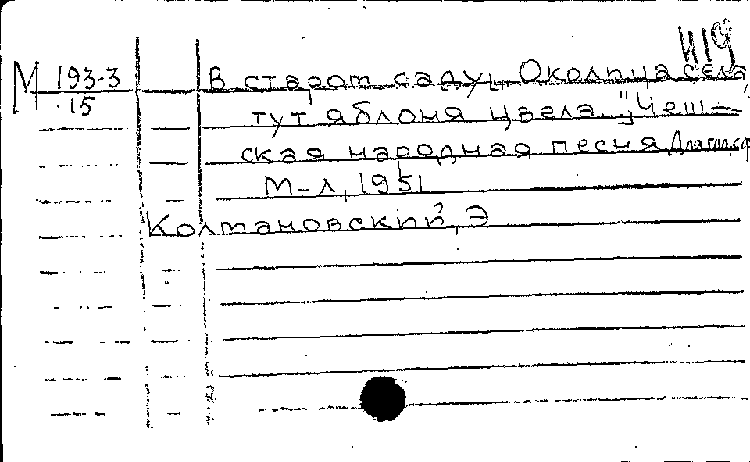 419
М 193-3 В старом саду, Околица села
15 тут яблоня цвела. "Чеш-
ская народная песня Для гол. сф
М-Л, 1951
Колтановский, Э